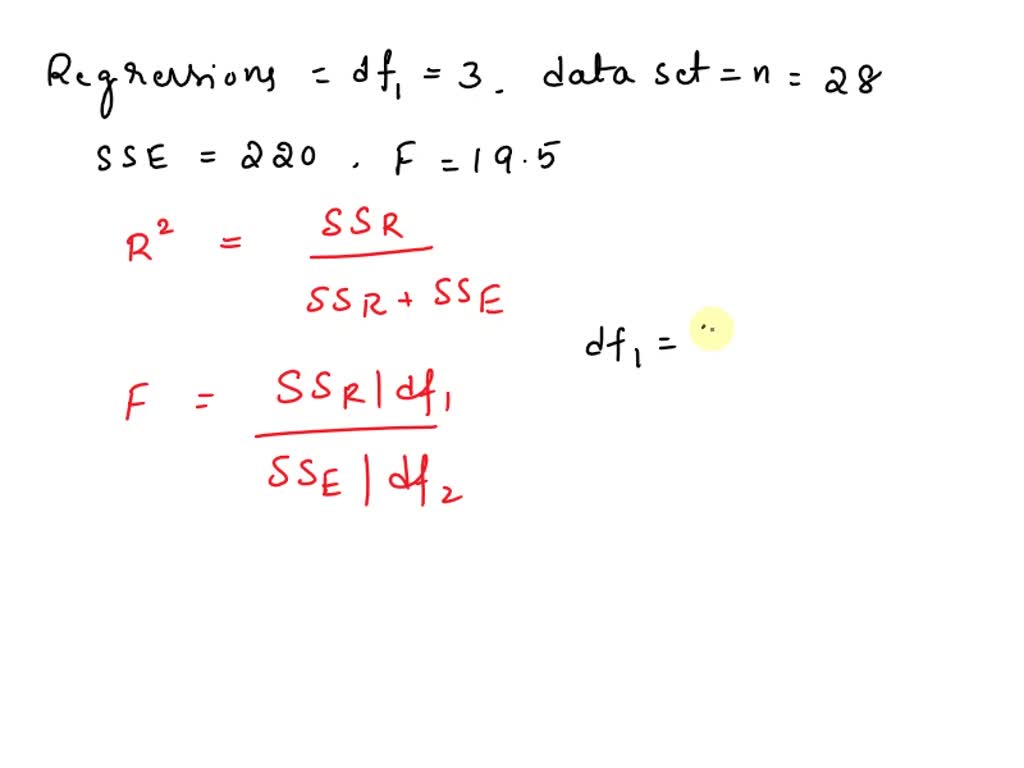 Regressions = df₁ = 3. data set = n = 28
SSE = 220 . F = 19.5
R² = SSR / SSR + SSE
df₁ =
F = SSR | df₁ / SSE | df₂